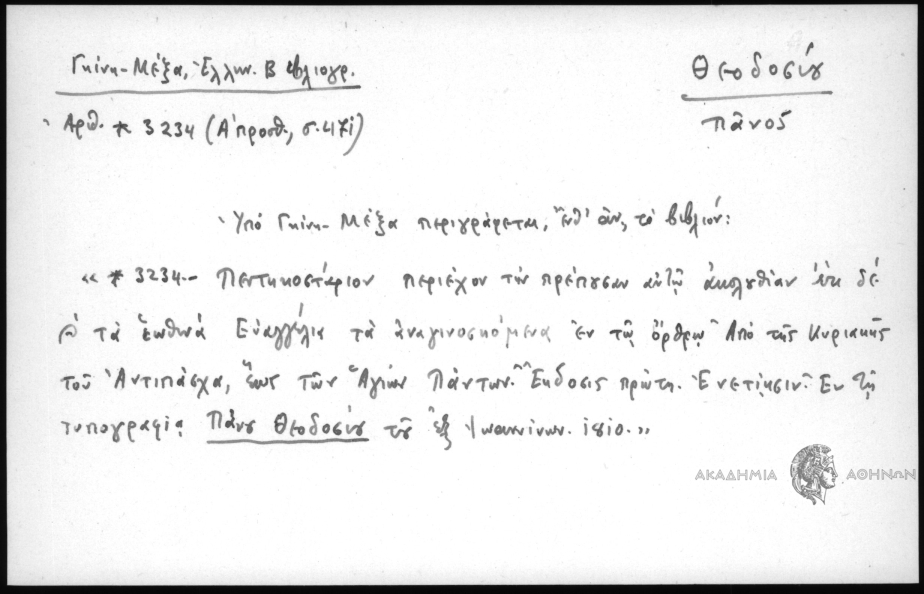 Γκίνη-Μέξα, Ἑλλην. Βιβλιογρ.
Θεοδοσίου
Ἀριθ. * 3234 (Α' προσθ., σ. 471)
Πᾶνος
Ὑπό Γκίνη-Μέξα περιγράφεται, ἔνθ' ἀν, τό βιβλιόν:
«* 3234.- Πεντηκοστάριον περιέχον τήν πρέπουσαν αὐτῷ ἀκολυθίαν ἔτι δέ
τά ἑωθινά Εὐαγγέλια τά ἀναγινοσκόμενα ἐν τῷ ὄρθρῳ Ἀπό τῆς Κυριακῆς
τοῦ Ἀντιπάσχα, ἕως τῶν Ἁγίων Πάντων. Ἔκδοσις πρώτη. Ἐνετίῃσιν. Ἐν τῇ
τυπογραφίᾳ Πάνου Θεοδοσίου τοῦ ἐξ Ἰωαννίνων. 1810.»
ΑΚΑΔΗΜΙΑ ΑΘΗΝΩΝ